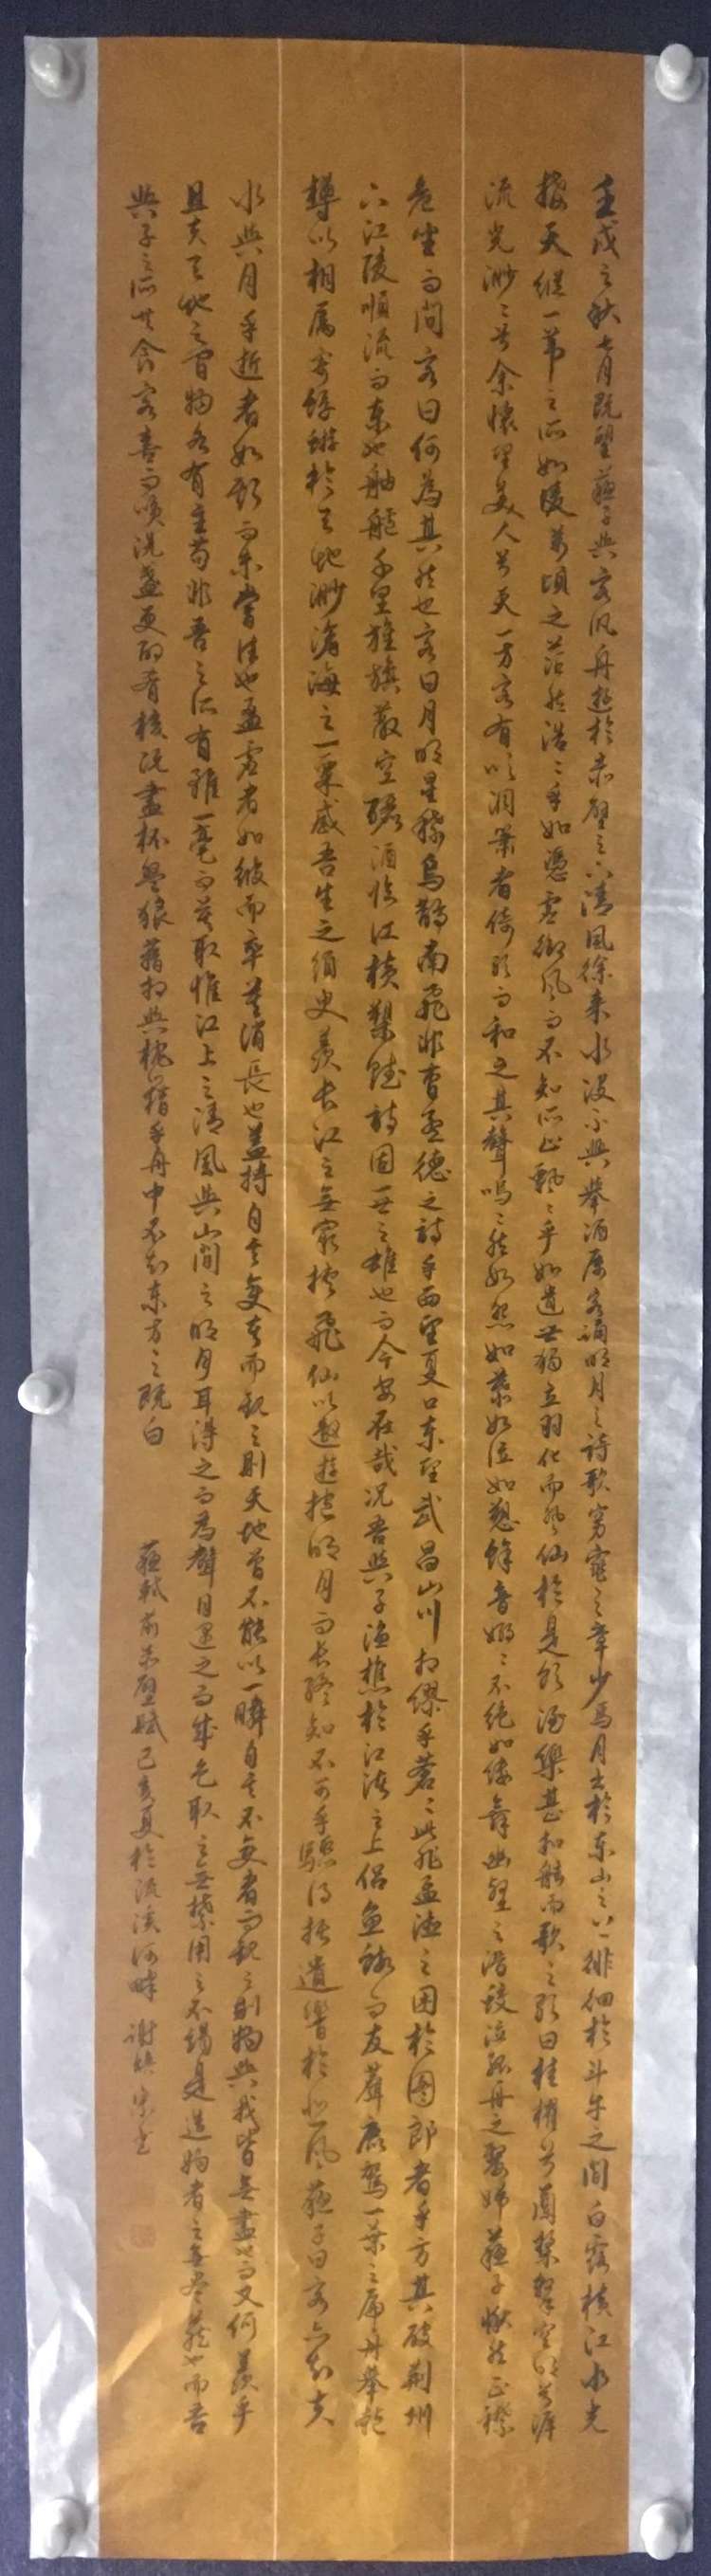 壬戌之秋七月既望蘇子與客泛舟遊於赤壁之下清風徐來水波不興舉酒屬客誦明月之詩歌窈窕之章少焉月出於東山之上徘徊於斗牛之間白露橫江水光
接天縱一葦之所如陵萬頃之茫然浩浩乎如憑虛御風而不知所止飄飄乎如遺世獨立羽化而登仙於是飲酒樂甚扣舷而歌之歌曰桂棹兮蘭槳擊空明兮溯
流光渺渺兮余懷望美人兮天一方客有吹洞簫者倚歌而和之其聲嗚嗚然如怨如慕如泣如愬餘音嫋嫋不絕如縷舞幽壑之潛蛟泣孤舟之嫠婦蘇子愀然正襟
危坐而問客曰何為其然也客曰月明星稀烏鵲南飛非曹孟德之詩乎西望夏口東望武昌山川相繆乎蒼蒼此非孟德之困於周郎者乎方其破荊州
下江陵順流而東也舳艫千里旌旗蔽空釃酒臨江橫槊賦詩固一世之雄也而今安在哉況吾與子漁樵於江渚之上侶魚蝦而友麋鹿駕一葉之扁舟舉匏
樽以相屬寄蜉蝣於天地渺滄海之一粟哀吾生之須臾羨長江之無窮挾飛仙以遨遊抱明月而長終知不可乎驟得托遺響於悲風蘇子曰客亦知夫
水與月乎逝者如斯而未嘗往也盈虛者如彼而卒莫消長也蓋將自其變者而觀之則天地曾不能以一瞬自其不變者而觀之則物與我皆無盡也而又何羨乎
且夫天地之間物各有主苟非吾之所有雖一毫而莫取惟江上之清風與山間之明月耳得之而為聲目遇之而成色取之無禁用之不竭是造物者之無盡藏也而吾
與子之所共食客喜而笑洗盞更酌肴核既盡杯盤狼藉相與枕藉乎舟中不知東方之既白
蘇軾前赤壁賦己亥夏於流溪河畔謝